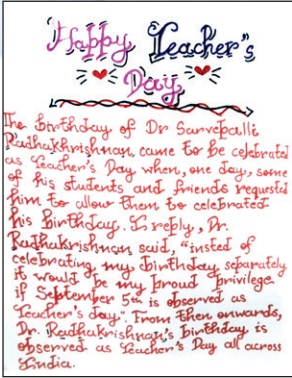 Happy Teacher's
Day
The birthday of Dr Sarvepalli
Radhakhrishnan, came to be celebrated
as Teacher's Day when, one day, some
of his students and friends requested
him to allow them to celebrated
his birthday. In reply, Dr.
Radhakrishnan said, "insted of
celebrating my birthday separately
it would be my proud privilege
if September 5th is observed as
Teacher's day". From then onwards,
Dr. Radhakrishnan's birthday is
observed as Teacher's Day all across
India.